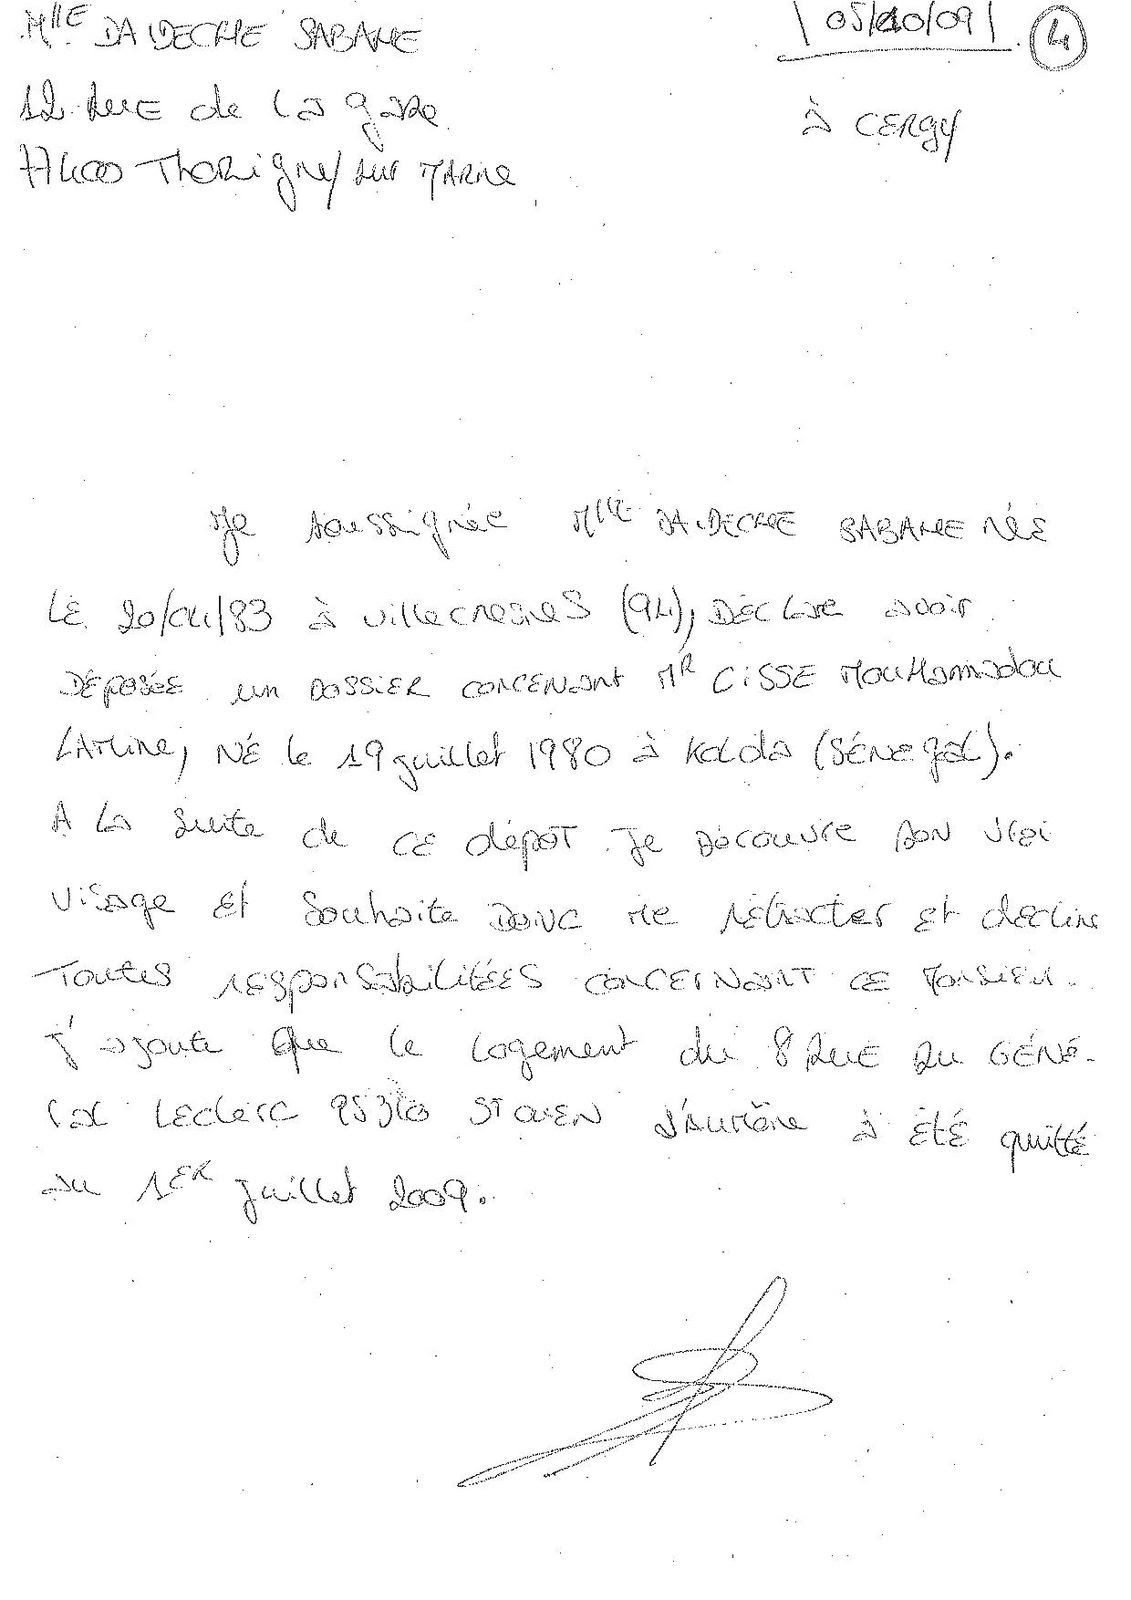 Mlle DA DECRNE SABANE
05/10/09
4
12 Rue de la gare
à CERGY
77400 Thorigny sur Marne
Je soussignée Mlle DA DECRNE SABANE NÉE
LE 20/04/83 à Villecresnes (94), Déclare avoir
DÉPOSÉE un DOSSIER concenant MR CISSE Mouhamadou
LAMine, NÉ le 19 juillet 1980 à Kolda (SÉNEgal).
A La suite de CE dépôt Je DÉcouvre son vrai
Visage Et Souhaite DONC me rétracter et decline
Toutes responsabilitéES CONCERNANT CE Monsieur.
J'ajoute que le logement du 8 RUE DU GÉNÉ-
ral Leclerc 95310 ST OUEN d'Aumône à ÉtÉ quitté
au 1ER juillet 2009.